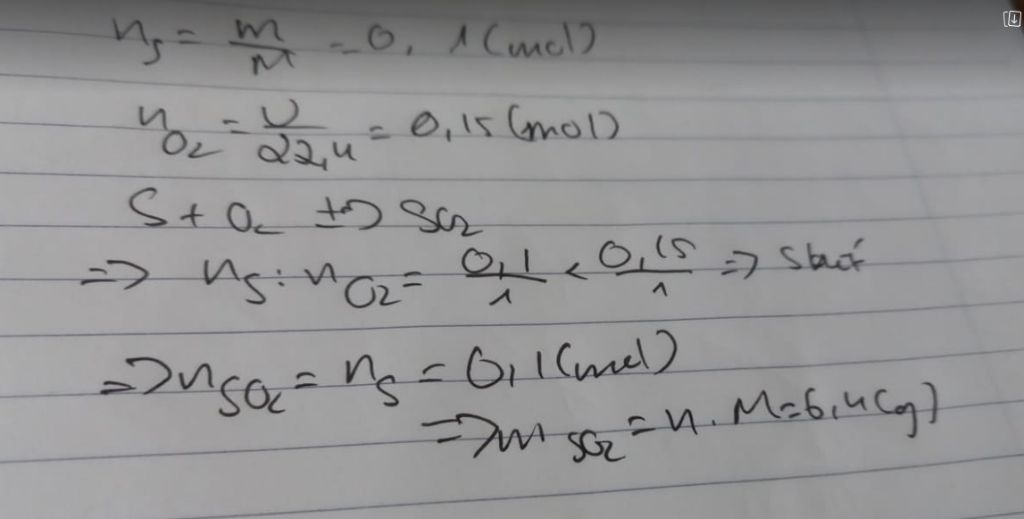 n_S = m/M = 0,1 (mol)
n_O2 = V/22,4 = 0,15 (mol)
S + O2 t°→ SO2
=> n_S : n_O2 = 0,1/1 < 0,15/1 => S hết
=> n_SO2 = n_S = 0,1 (mol)
=> m_SO2 = n . M = 6,4 (g)